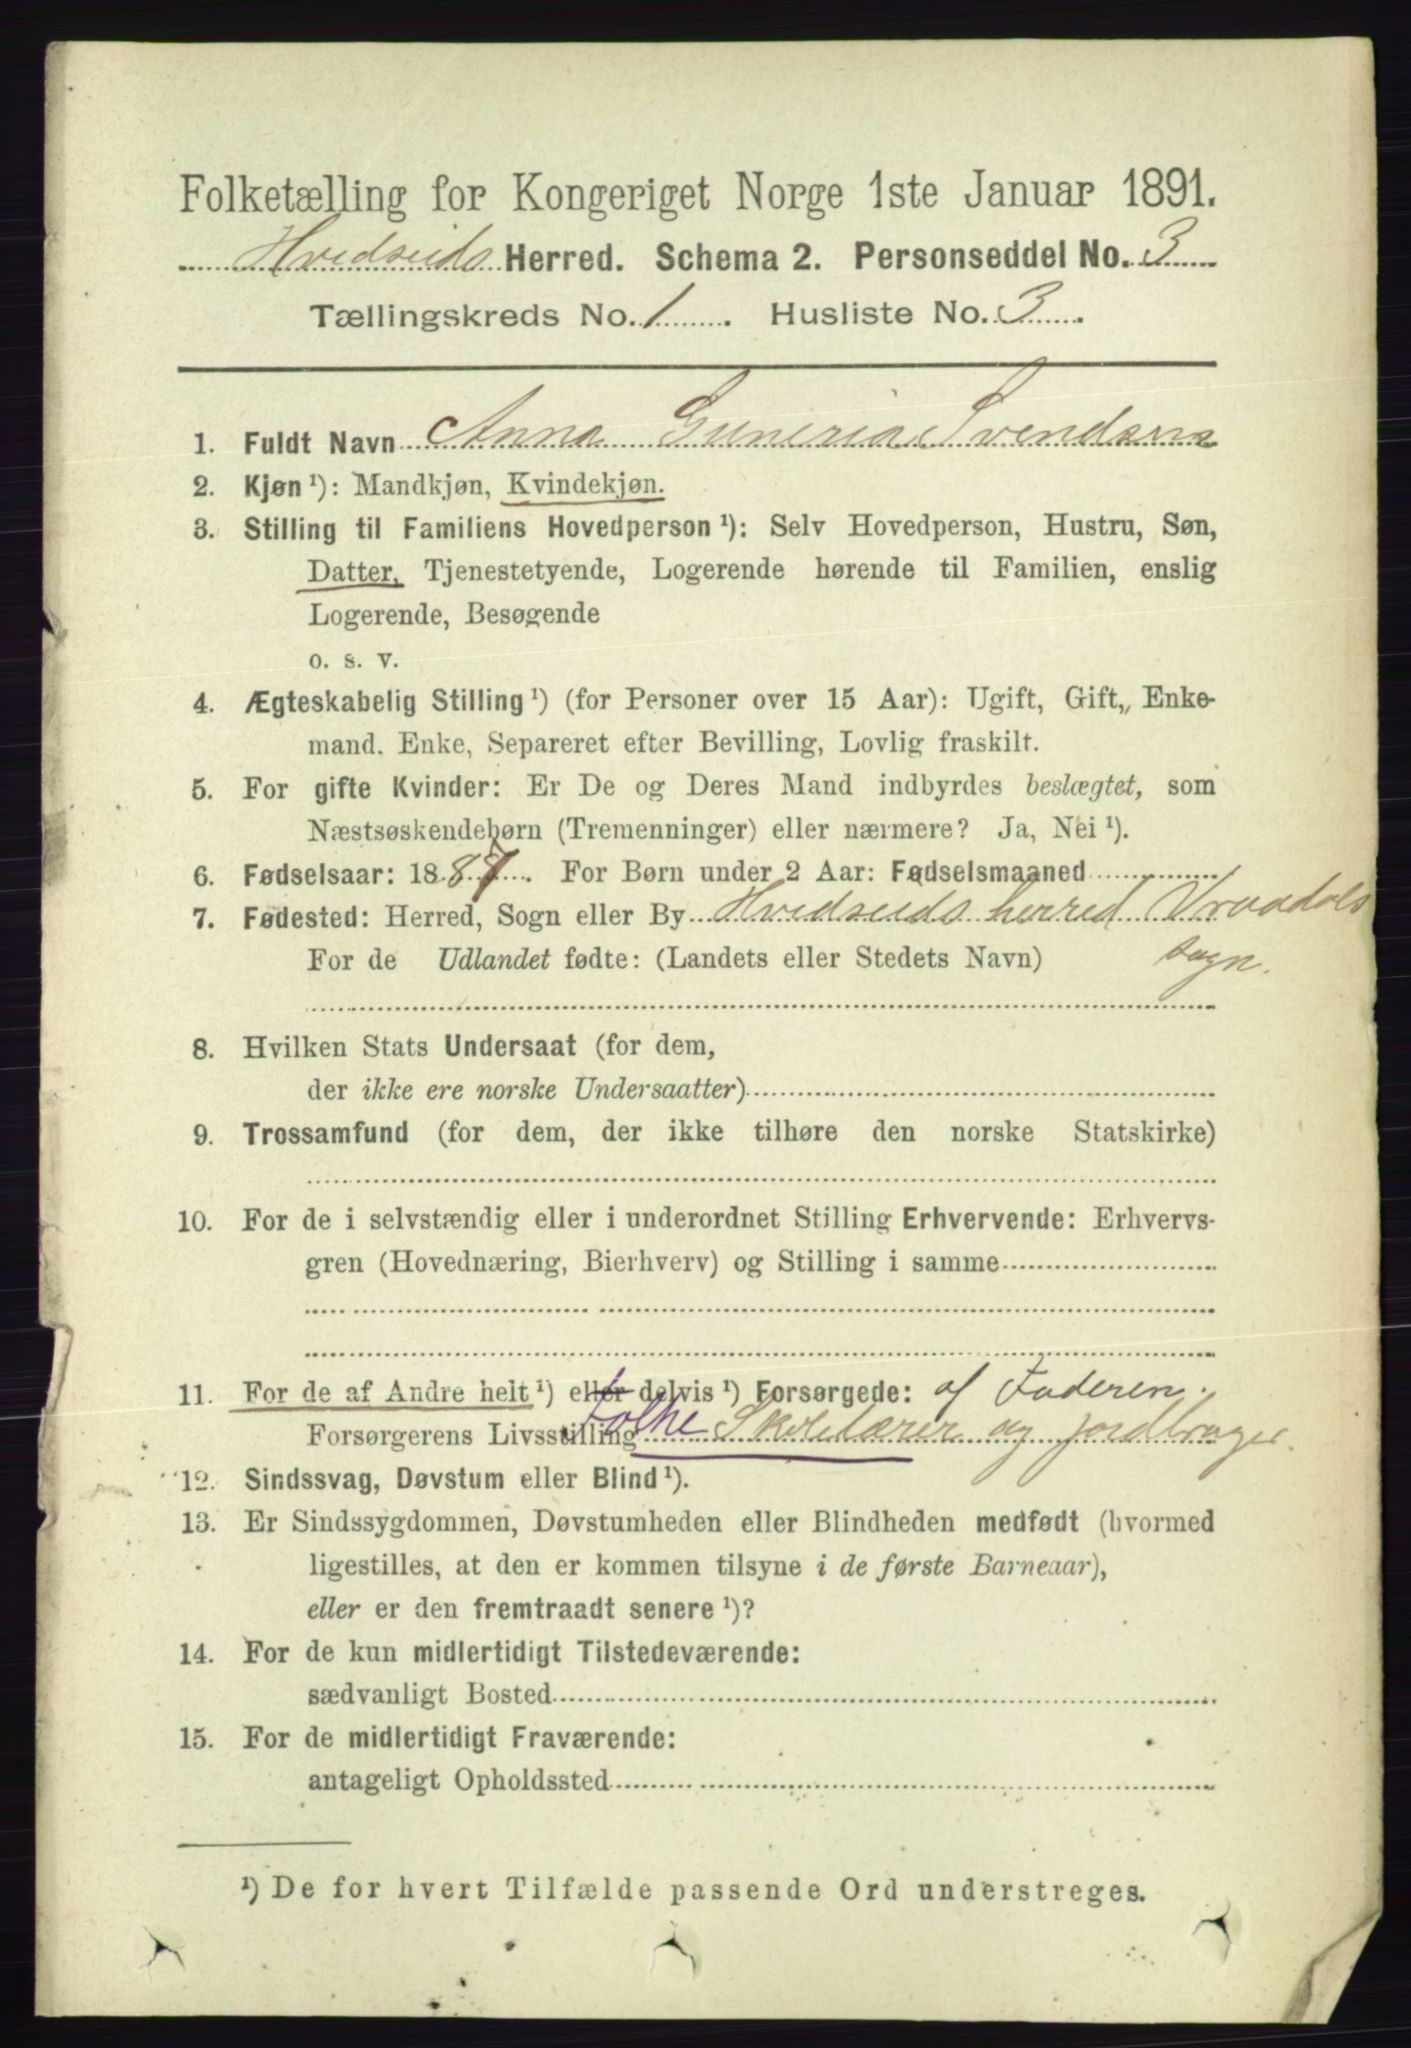 Folketælling for Kongeriget Norge 1ste Januar 1891.
Hvidseids Herred. Schema 2. Personseddel No. 3
Tællingskreds No. 1 . Husliste No. 3 .
1. Fuldt Navn Anna Guneria Svendsen
2. Kjøn ¹): Mandkjøn, Kvindekjøn.
3. Stilling til Familiens Hovedperson ¹): Selv Hovedperson, Hustru, Søn,
Datter, Tjenestetyende, Logerende hørende til Familien, enslig
Logerende, Besøgende
o. s. v.
4. Ægteskabelig Stilling ¹) (for Personer over 15 Aar): Ugift, Gift, Enke-
mand. Enke, Separeret efter Bevilling, Lovlig fraskilt.
5. For gifte Kvinder: Er De og Deres Mand indbyrdes beslægtet, som
Næstsøskendebørn (Tremenninger) eller nærmere? Ja, Nei ¹).
6. Fødselsaar: 1887. For Børn under 2 Aar: Fødselsmaaned
7. Fødested: Herred, Sogn eller By Hvidseids herred Vraadals
For de Udlandet fødte: (Landets eller Stedets Navn) sogn.
8. Hvilken Stats Undersaat (for dem,
der ikke ere norske Undersaatter)
9. Trossamfund (for dem, der ikke tilhøre den norske Statskirke)
10. For de i selvstændig eller i underordnet Stilling Erhvervende: Erhvervs-
gren (Hovednæring, Bierhverv) og Stilling i samme
11. For de af Andre helt ¹) eller delvis ¹) Forsørgede: af Faderen.
Forsørgerens Livsstilling Folke Skolelærer og jordbruger.
12. Sindssvag, Døvstum eller Blind ¹).
13. Er Sindssygdommen, Døvstumheden eller Blindheden medfødt (hvormed
ligestilles, at den er kommen tilsyne i de første Barneaar),
eller er den fremtraadt senere ¹)?
14. For de kun midlertidigt Tilstedeværende:
sædvanligt Bosted
15. For de midlertidigt Fraværende:
antageligt Opholdssted
¹) De for hvert Tilfælde passende Ord understreges.